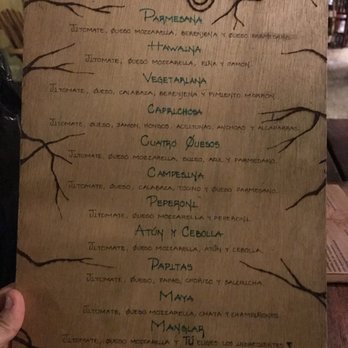 Parmesana
Jitomate, queso mozzarella, berenjena y queso parmesano.
Hawaina
Jitomate, queso mozzarella, piña y jamón.
Vegetariana
Jitomate, queso, calabaza, berenjena y pimiento morrón.
Caprichosa
Jitomate, queso, jamón, hongos, aceitunas, anchoas y alcaparras.
Cuatro Quesos
Jitomate, queso mozzarella, suizo, azul y parmesano.
Campesina
Jitomate, queso, calabaza, tocino y queso parmesano.
Peperoni
Jitomate, queso mozzarella y peperoni.
Atún y Cebolla
Jitomate, queso mozzarella, atún y cebolla.
Papitas
Jitomate, queso, papas, chorizo y salchicha.
Maya
Jitomate, queso mozzarella, chaya y champiñones.
Manglar
Jitomate, queso mozzarella y Tú eliges los ingredientes